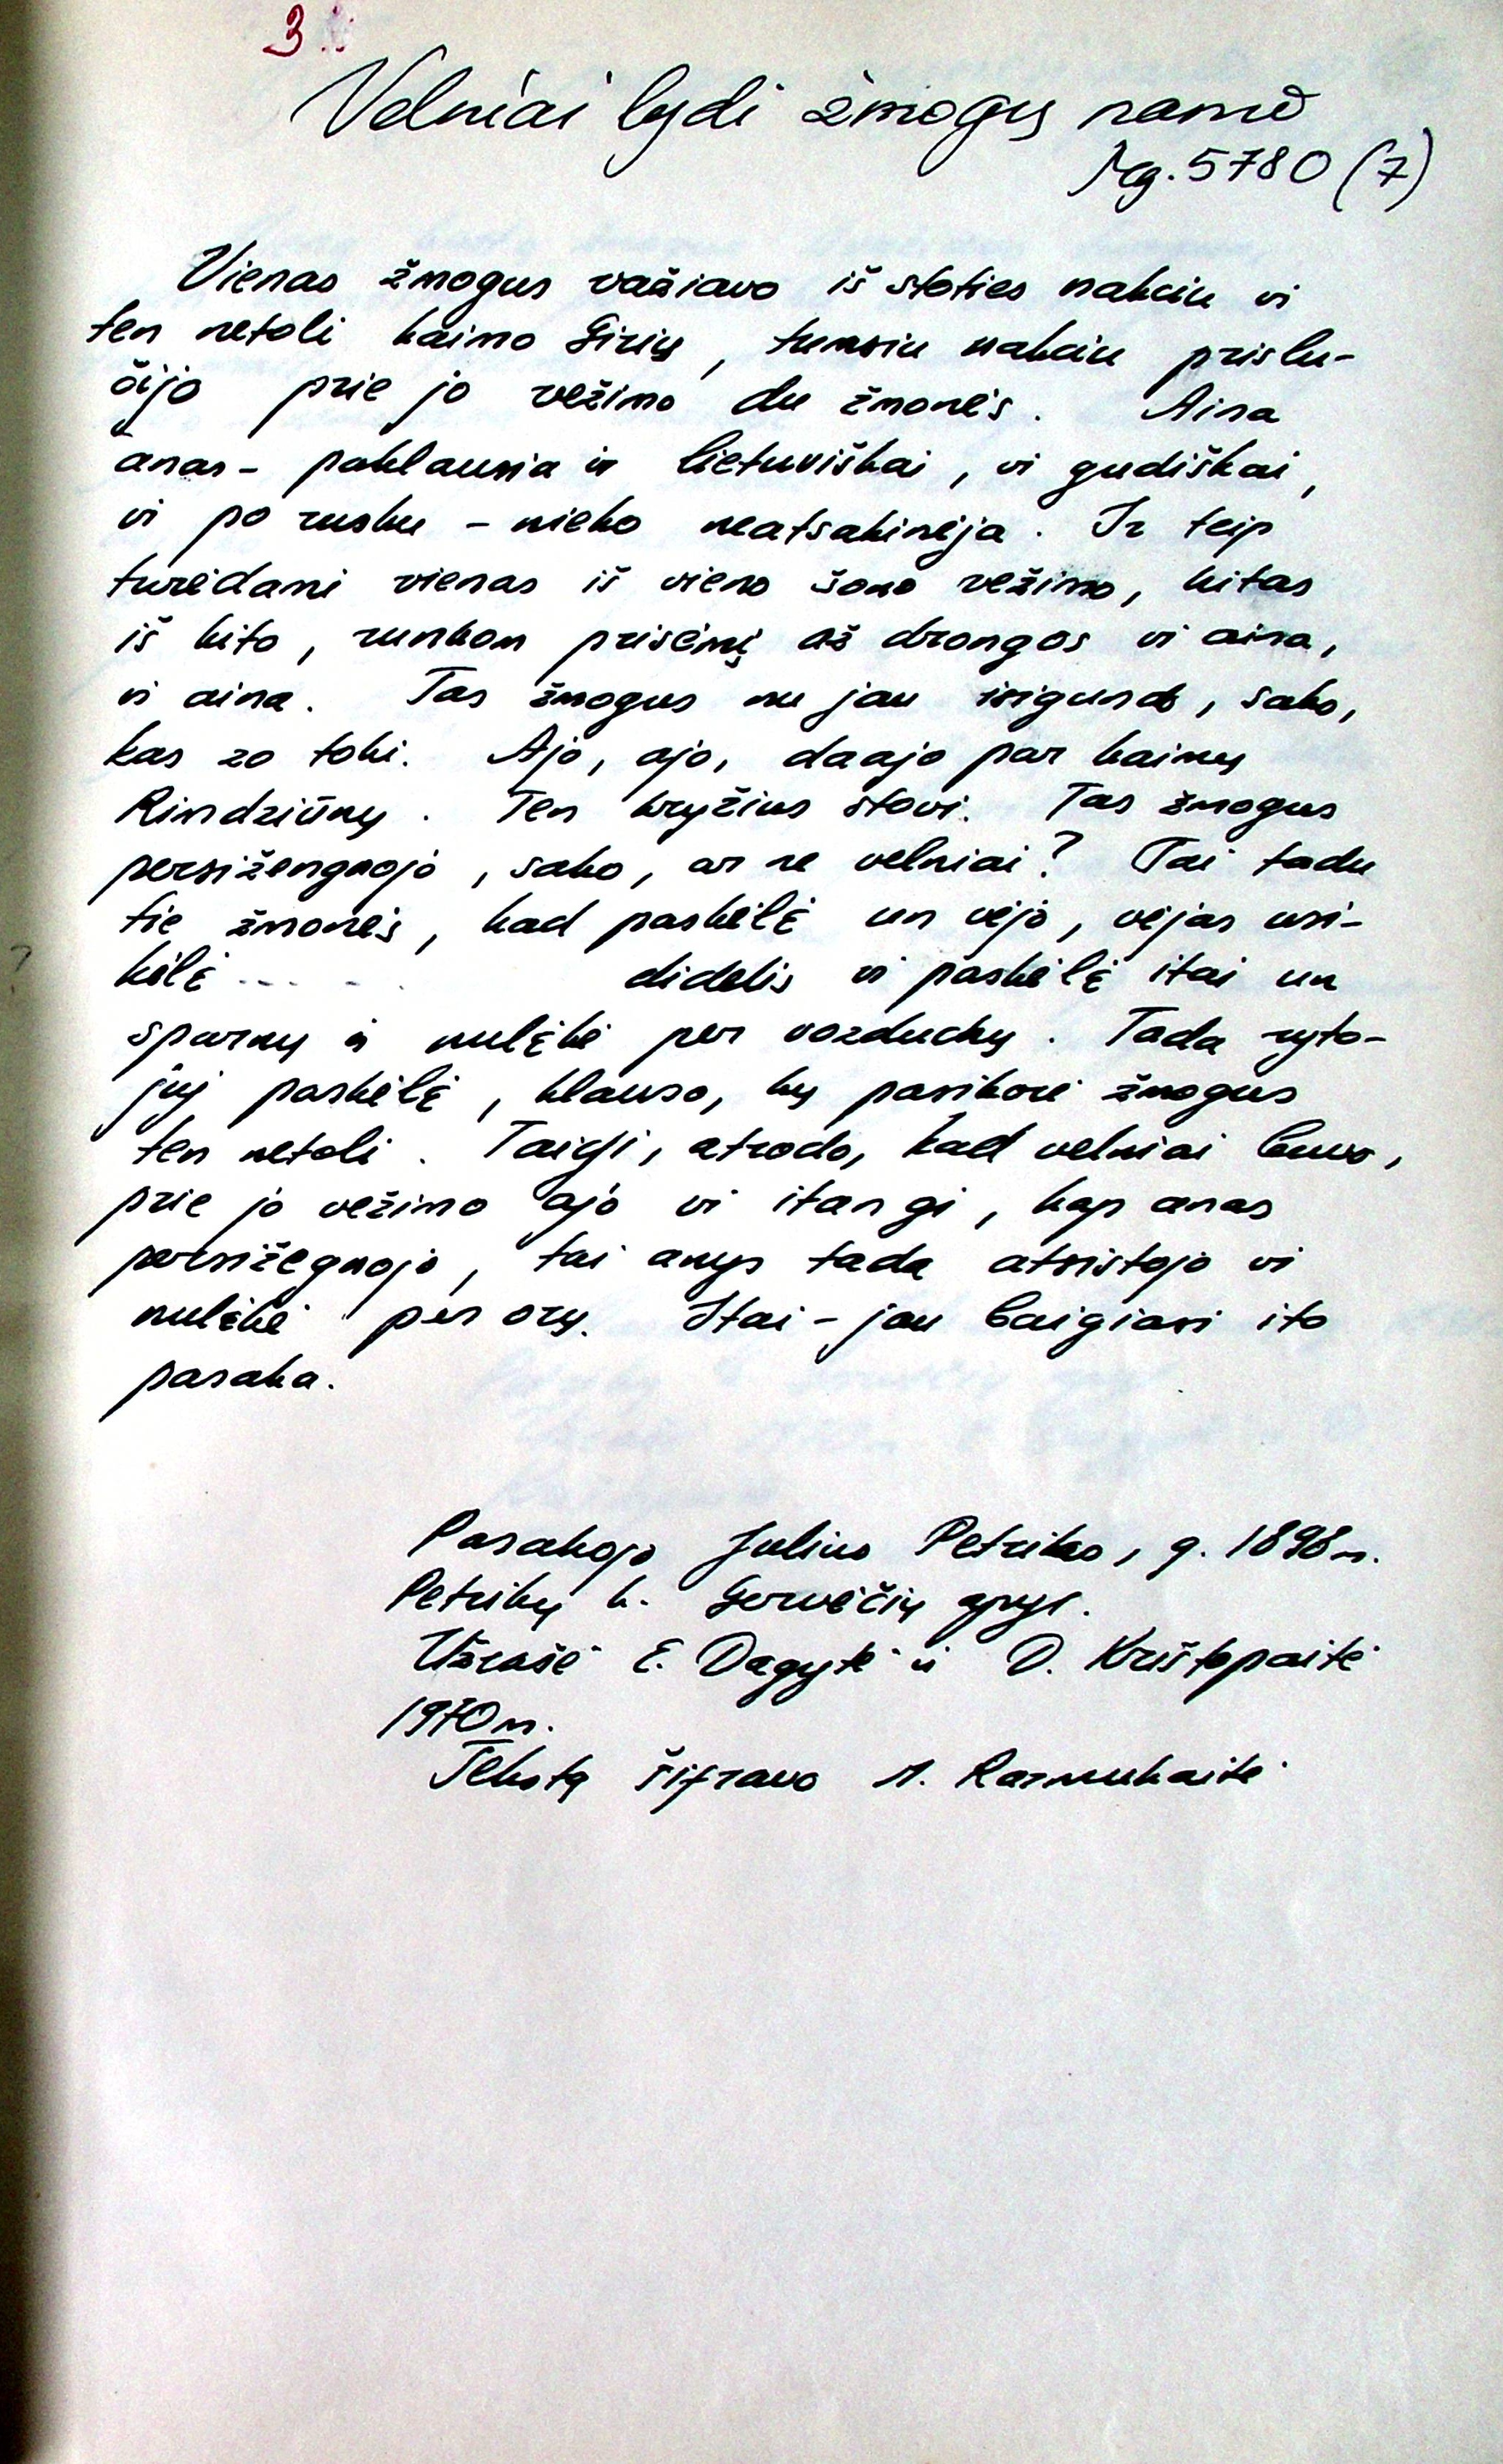 3
Velniai lydi žmogų namo
Mg. 5780 (7)
Vienas žmogus važiavo iš stoties nakciu vi
ten netoli kaimo Girių, tumsiu nakciu prislu-
čijo prie jo vežimo du žmonės. Aina
anas - paklausia ir lietuviškai, vi gudiškai,
vi po rusku - nieko neatsakinėja. Ir teip
turėdami vienas iš vieno šono vežimo, kitas
iš kito, runkom prisėmį až drongos vi aina,
vi aina. Tas žmogus nu jau isigundo, sako,
kas zo toki. Ajo, ajo, daajo par kaimų
Rimdziūnų. Ten kryžius stovi. Tas žmogus
persižengnojo, sako, ar ne velniai? Tai tadu
tie žmonės, kad paskėlė un vėjo, vėjas usi-
kėlė ... didelis vi paskėlė itai un
sparnų ir nulėkė per vozduchų. Tada ryto-
juj paskėlė, klauso, kų pasikorė žmogus
ten netoli. Taigi, atrodo, kad velniai buvo,
prie jo vežimo ajo vi itangi, kap anas
persižegnojo, tai anys tada atsistojo vi
nulėkė per orų. Itai - jau baigiasi ito
pasaka.
Pasakojo Julius Petrikas, g. 1898 m.
Petrikų k. Gervėčių apyl.
Užrašė E. Dagytė ir D. Krištopaitė
1970 m.
Tekstą šifravo A. Razmukaitė